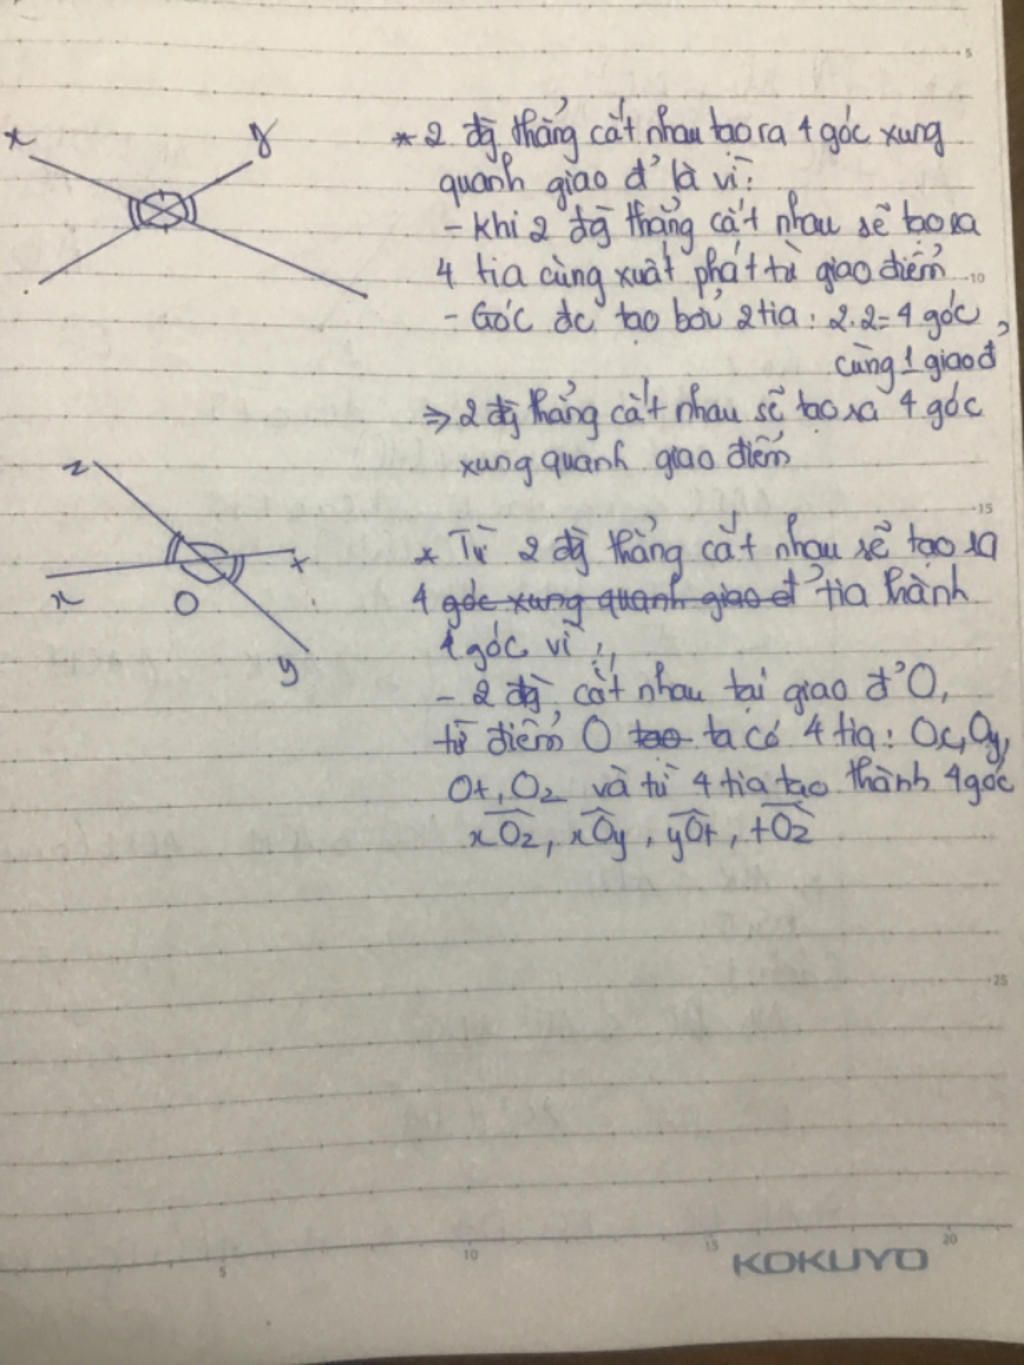 x
y
* 2 đg̀ thẳng cắt nhau tạo ra 4 góc xung
quanh giao đ' là vì:
- Khi 2 đg̀ thẳng cắt nhau sẽ tạo ra
4 tia cùng xuất phát từ giao điểm
- Góc đc tạo bởi 2 tia: 2.2=4 góc,
cùng 1 giao đ
=> 2 đg̀ thẳng cắt nhau sẽ tạo ra 4 góc
xung quanh giao điểm
z
x
O
t
y
* Từ 2 đg̀ thẳng cắt nhau sẽ tạo ra
4 góc xung quanh giao đ' tia thành
4 góc vì:
- 2 đg̀ cắt nhau tại giao đ' O,
từ điểm O tạo ta có 4 tia: Ox, Oy,
Ot, Oz và từ 4 tia tạo thành 4 góc
xOz, xOy, yOt, tOz
5
10
15
25
5
10
15
20
KOKUYO